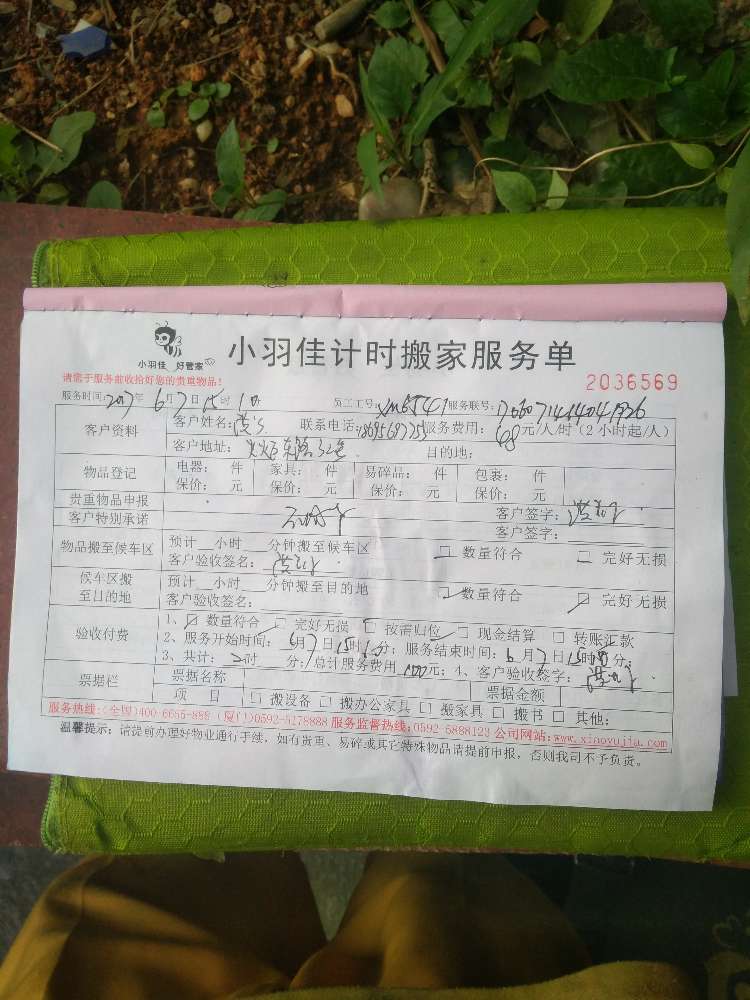 小羽佳 好管家
小羽佳计时搬家服务单
请您于服务前收拾好您的贵重物品！
2036569
服务时间：2017年6月7日15时10 员工工号：xm6541 服务联号：
客户资料 客户姓名： 联系电话： 服务费用：48元/人/时（2小时起/人）
客户地址： 目的地：
物品登记 电器： 件 家具： 件 易碎品： 件 包裹： 件
保价： 元 保价： 元 保价： 元 保价： 元
贵重物品申报 客户签字：
客户特别承诺 客户签字：
物品搬至候车区 预计__小时__分钟搬至候车区 □ 数量符合 □ 完好无损
客户验收签名：
候车区搬至目的地 预计__小时__分钟搬至目的地 ☑ 数量符合 ☑ 完好无损
客户验收签名：
验收付费 1、☑ 数量符合 □ 完好无损 □ 按需归位 ☑ 现金结算 □ 转账汇款
2、服务开始时间：6月7日15时 分；服务结束时间：6月7日15时 分；
3、共计：2时__分；总计服务费用 100元；4、客户验收签字：
票据栏 票据名称 票据金额
项 目 □ 搬设备 □ 搬办公家具 □ 搬家具 □ 搬书 □ 其他：
服务热线：(全国)400-6655-888 (厦门)0592-5178888 服务监督热线：0592-5888123 公司网站：www.xiaoyujia.com
温馨提示：请提前办理好物业通行手续，如有贵重、易碎或其它特殊物品请提前申报，否则我司不予负责。